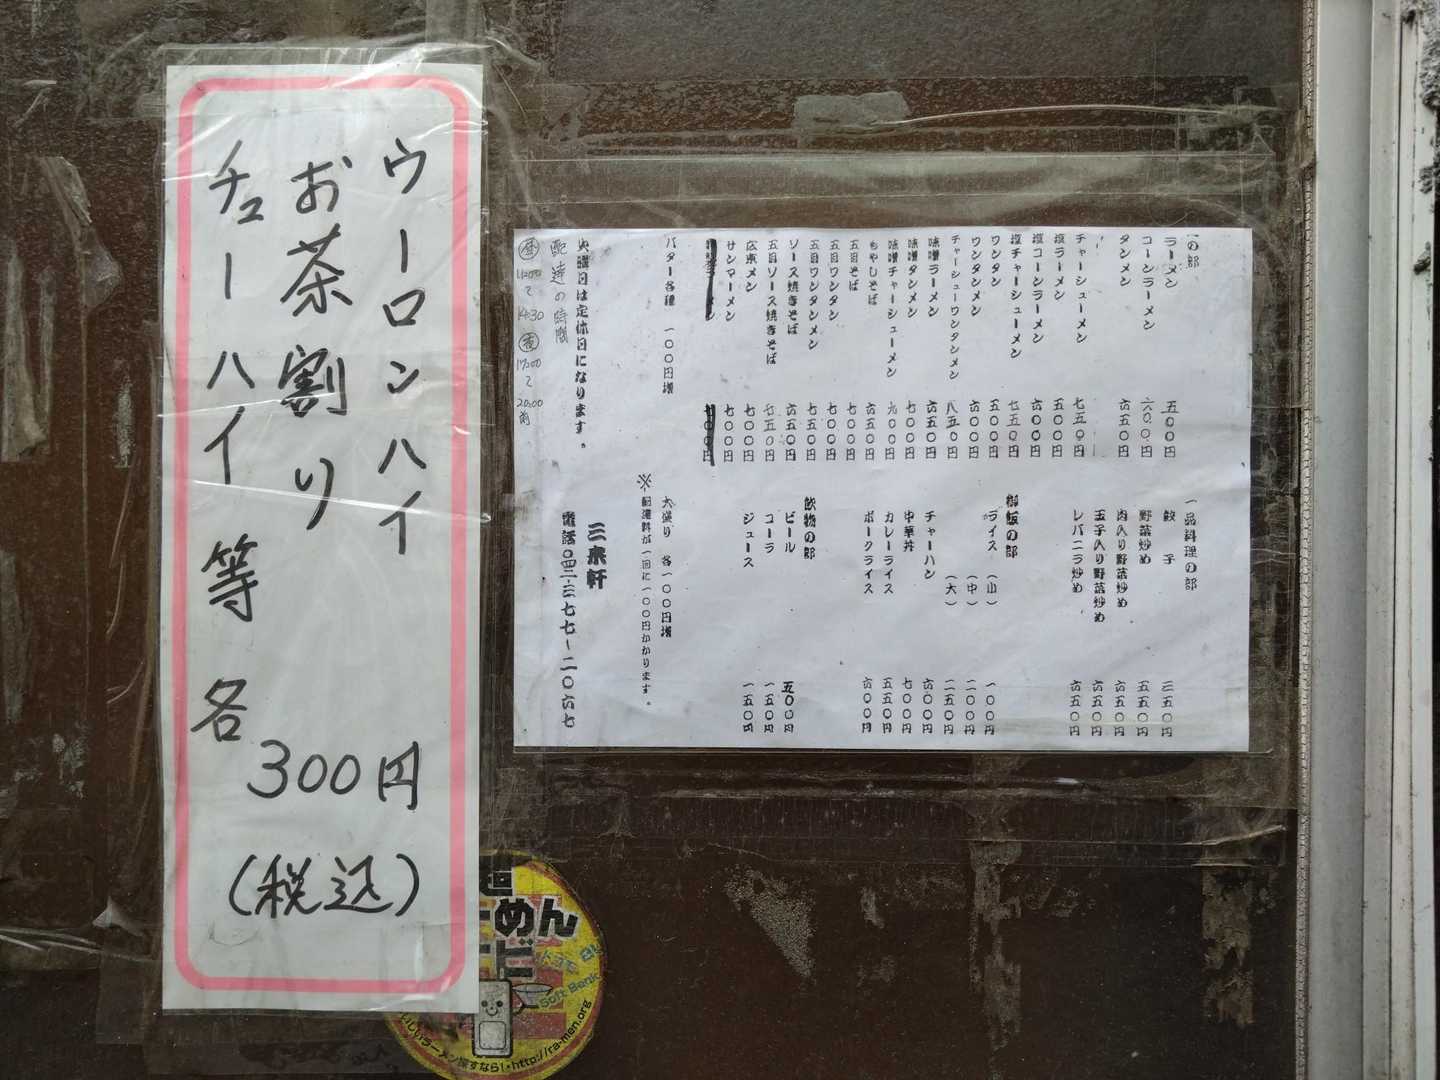 ウーロンハイ
お茶割り
チューハイ 等 各
300円
(税込)
の部
ラーメン 五〇〇円
コーンラーメン 六〇〇円
タンメン 六五〇円
チャーシューメン 七五〇円
塩ラーメン 五〇〇円
塩コーンラーメン 六〇〇円
塩チャーシューメン 七五〇円
ワンタン 五〇〇円
ワンタンメン 六〇〇円
チャーシューワンタンメン 八五〇円
味噌ラーメン 六五〇円
味噌タンメン 七〇〇円
味噌チャーシューメン 九〇〇円
もやしそば 六五〇円
五目そば 七〇〇円
五目ワンタン 七〇〇円
五目ワンタンメン 七五〇円
ソース焼きそば 六五〇円
五目ソース焼きそば 七五〇円
広東メン 七〇〇円
サンマーメン 七〇〇円
メン 七〇〇円
バター各種 一〇〇円増
火曜日は定休日になります。
配達の時間
昼 11:00〜14:30 夜 17:00〜20:00前
一品料理の部
餃子 三五〇円
野菜炒め 五五〇円
肉入り野菜炒め 六五〇円
玉子入り野菜炒め 六五〇円
レバニラ炒め 六五〇円
御飯の部
ライス (小) 一〇〇円
(中) 二〇〇円
(大) 二五〇円
チャーハン 六〇〇円
中華丼 七〇〇円
カレーライス 五五〇円
ポークライス 六〇〇円
飲物の部
ビール 五〇〇円
コーラ 一五〇円
ジュース 一五〇円
大盛り 各一〇〇円増
※配達料が一回に一〇〇円かかります。
三来軒
電話〇四二-三七七-二〇六七
超
ーめん
ナビ
Soft Bank
いしいラーメン探すなら!・http://ra-men.org